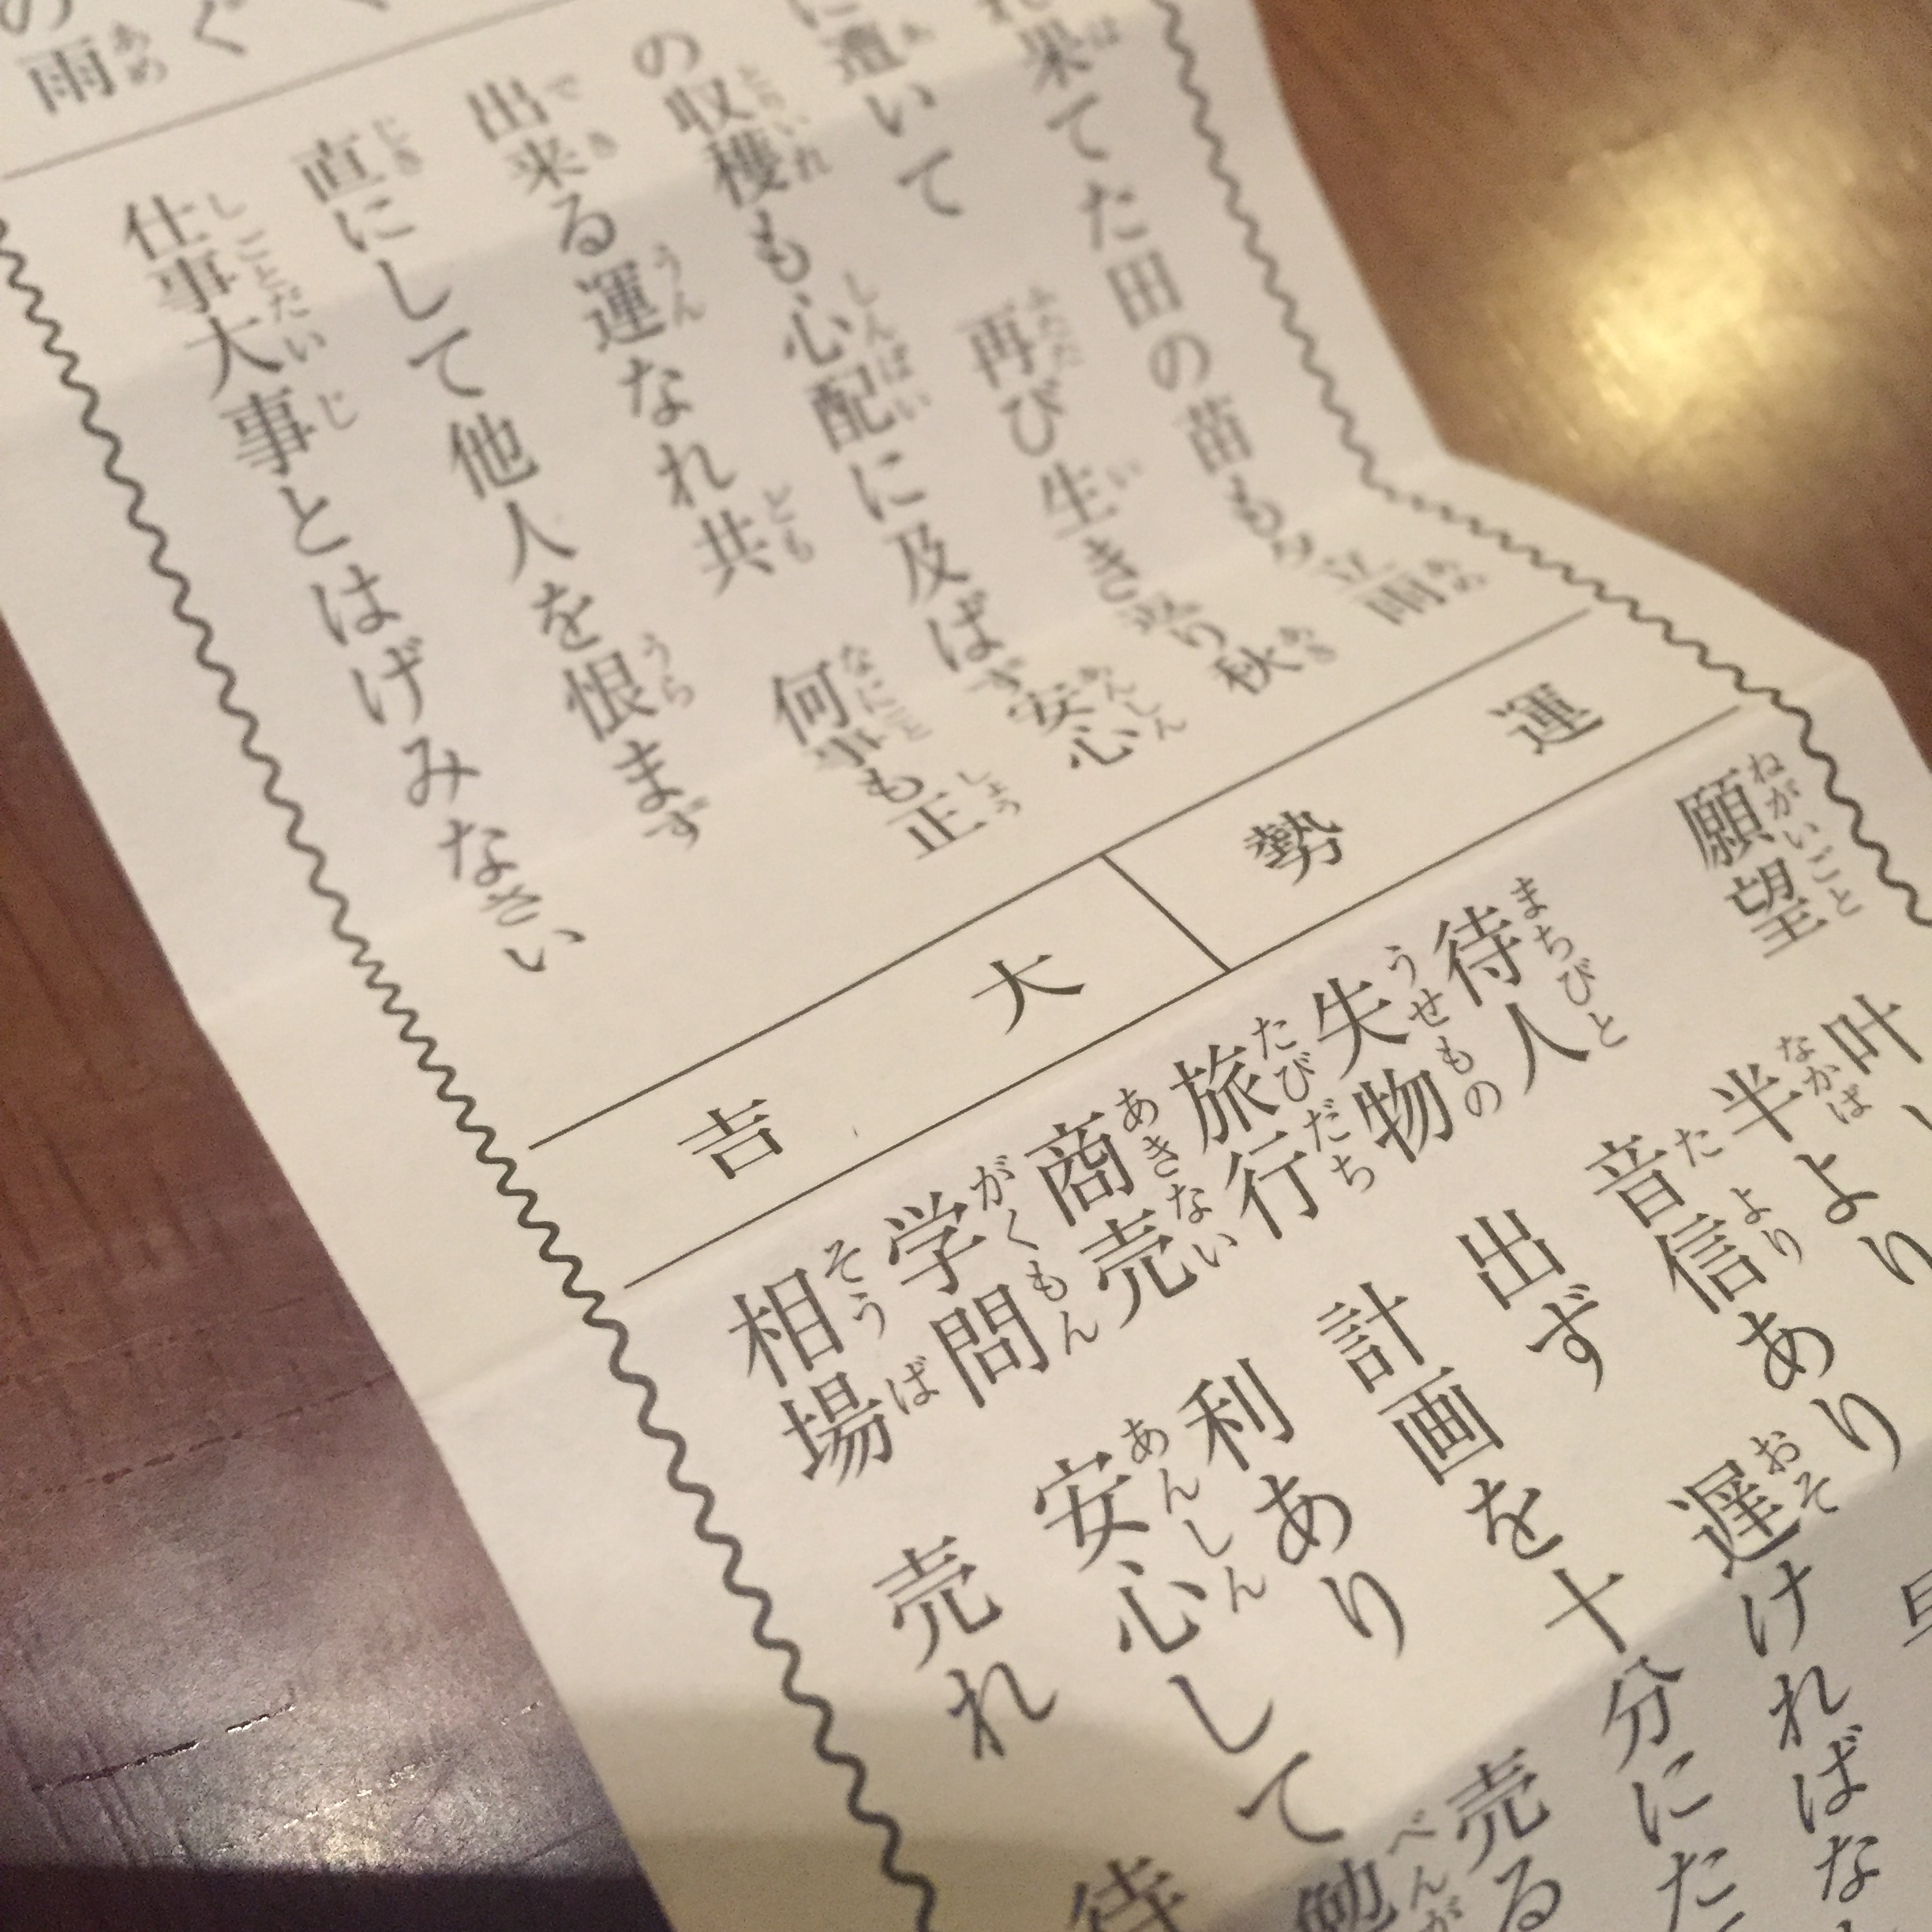 雨
ぐ
果てた田の苗も夕立雨
に遭いて 再び生き返り秋
の収穫も心配に及ばず安心
出来る運なれ共 何事も正
直にして他人を恨まず
仕事大事とはげみなさい
運勢 大吉
願望 叶
半より
待人 音信あり 遅ければな
失物 出ず
旅行 計画を十分にた
商売 利あり 売る
学問 安心して勉
相場 売れ 待